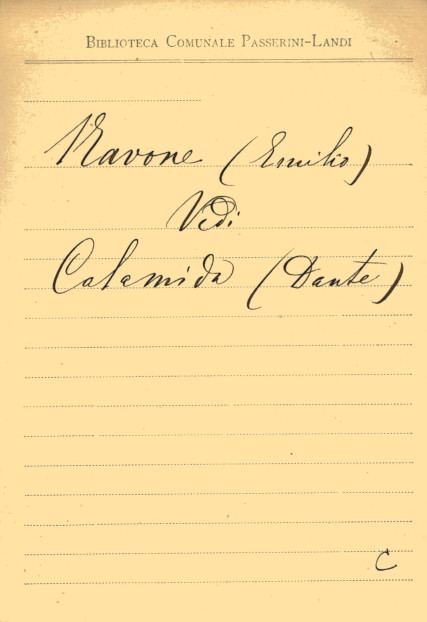 BIBLIOTECA COMUNALE PASSERINI-LANDI
Navone (Emilio)
Vedi
Calamida (Dante)
C